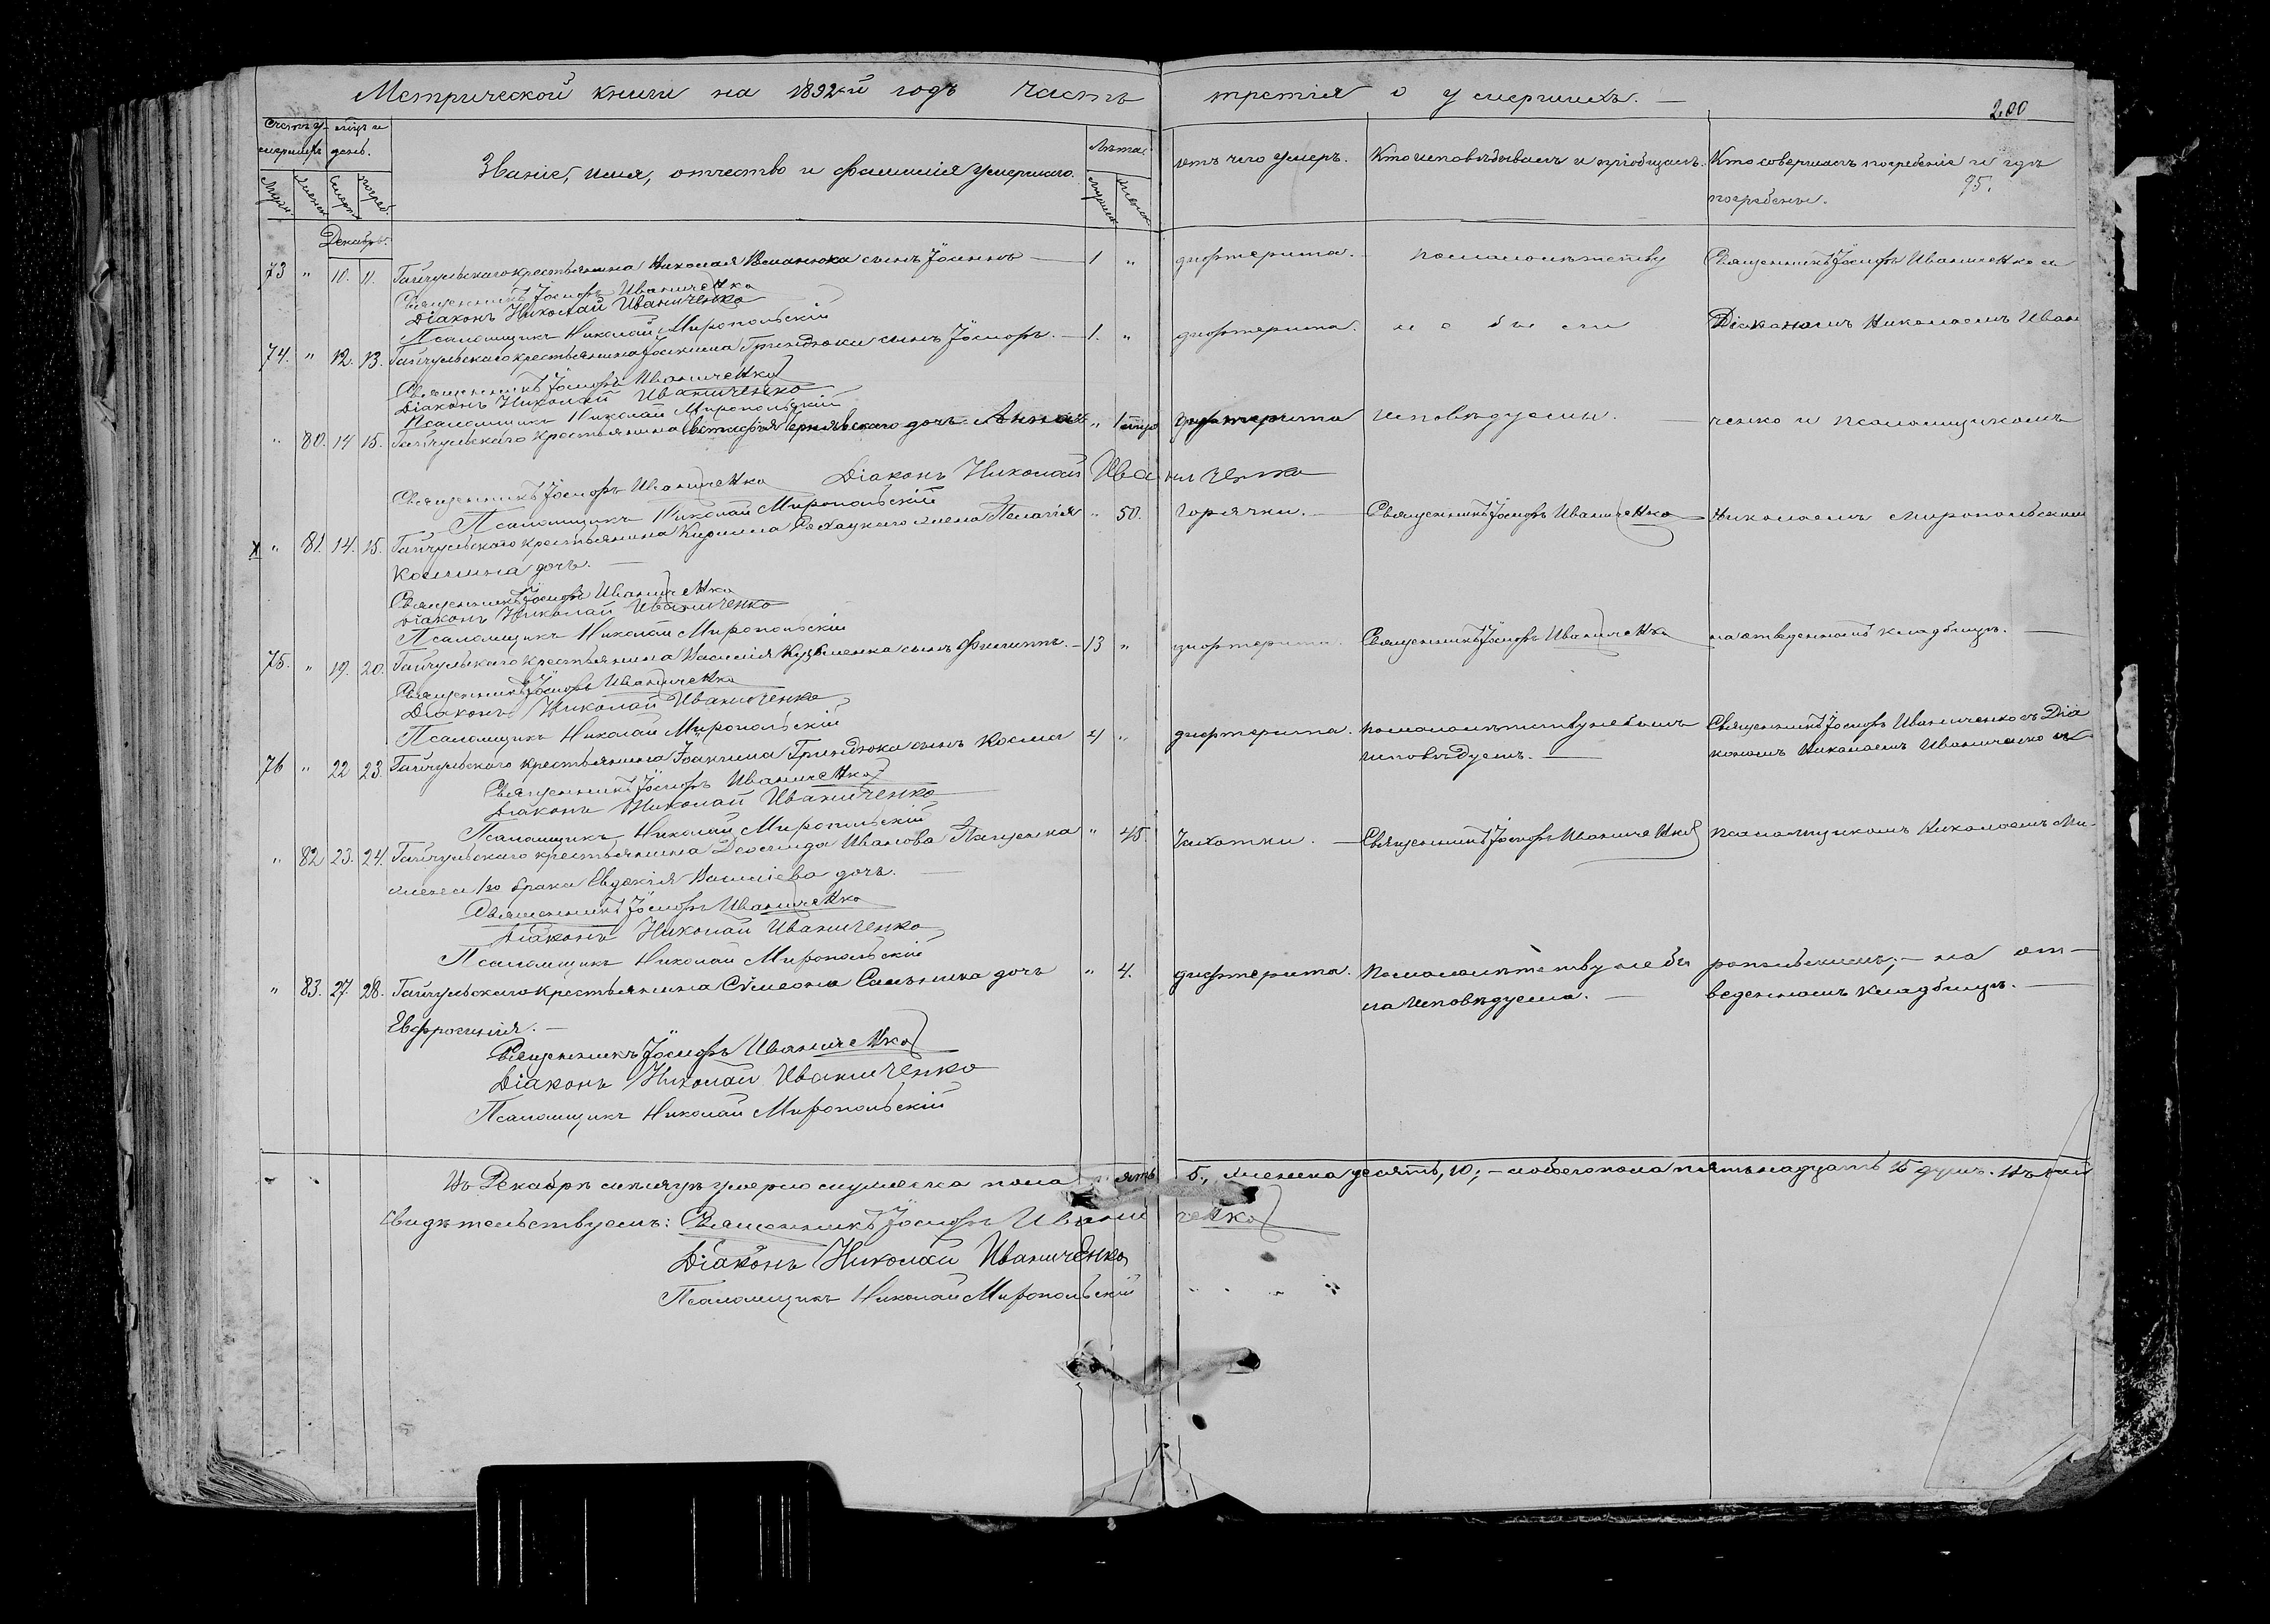 Метрической книги на 1892-й годъ часть третія о умершихъ. —
200
95.
Счетъ у-
мершихъ
мѣс. и
день.
Званіе, имя, отчество и фамилія умершаго.
Лѣта
отъ чего умеръ.
Кто исповѣдывалъ и пріобщалъ.
Кто совершалъ погребеніе и гдѣ
погребены.
Мужн.
Женск.
Смерти
погреб.
Мужск.
Женск.
Декабрь.
73 " 10. 11. Гайчульскаго крестьянина Николая сынъ Іоаннъ — 1 " дифтерита. По малолѣтству Священникъ Іосифъ Иваниченко съ
Священникъ Іосифъ Иваниченко
Діаконъ Николай Иваниченко
Псаломщикъ Николай Миропольскій
74. " 12. 13. Гайчульскаго крестьянина Іоакима Гриндюка сынъ Іосифъ. — 1. " дифтерита. не были Діакономъ Николаемъ Ивани
Священникъ Іосифъ Иваниченко
Діаконъ Николай Иваниченко
Псаломщикъ Николай Миропольскій
" 80. 14 15. Гайчульскаго крестьянина Евстафія Чернявскаго дочь Анна " 1 дифтерита исповѣдуемы. ченко и псаломщикомъ
Священникъ Іосифъ Иваниченко Діаконъ Николай Иваниченко
Псаломщикъ Николай Миропольскій
х " 81. 14. 15. Гайчульскаго крестьянина Кирилла жена Пелагія " 50. горячки. — Священникъ Іосифъ Иваниченко Николаемъ Миропольским
Космина дочь. —
Священникъ Іосифъ Иваниченко
Діаконъ Николай Иваниченко
Псаломщикъ Николай Миропольскій
75. " 19. 20. Гайчульскаго крестьянина Василія Кузьменка сынъ Филиппъ. — 13 " дифтерита. Священникъ Іосифъ Иваниченко на отведенномъ кладбищѣ. —
Священникъ Іосифъ Иваниченко
Діаконъ Николай Иваниченко
Псаломщикъ Николай Миропольскій
76 " 22 23. Гайчульскаго крестьянина Іоакима Гриндюка сынъ Косма 4 " дифтерита. По малолѣтству не былъ Священникъ Іосифъ Иваниченко съ Діа
исповѣдуемъ. — кономъ Николаемъ Иваниченко и
Священникъ Іосифъ Иваниченко
Діаконъ Николай Иваниченко
Псаломщикъ Николай Миропольскій
" 82 23. 24. Гайчульскаго крестьянина Леонида Иванова Пащенка " 45. Чахотки. — Священникъ Іосифъ Иваниченко псаломщикомъ Николаемъ Ми-
жена 1го брака Евдокія Василіева дочь. —
Священникъ Іосифъ Иваниченко
Діаконъ Николай Иваниченко
Псаломщикъ Николай Миропольскій
" 83. 27. 28. Гайчульскаго крестьянина Сѵмеона дочь " 4. дифтерита. По малолѣтству не бы ропольскимъ; — на от-
Евфросинія. — ла исповѣдуема. — веденномъ кладбищѣ. —
Священникъ Іосифъ Иваниченко
Діаконъ Николай Иваниченко
Псаломщикъ Николай Миропольскій
Въ Декабрѣ мѣсяцѣ умерло мужеска пола пять 5., женска десять, 10; — и обоего пола пятьнадцать 15 душъ. Въ чем
свидѣтельствуемъ: Священникъ Іосифъ Иваниченко
Діаконъ Николай Иваниченко
Псаломщикъ Николай Миропольскій